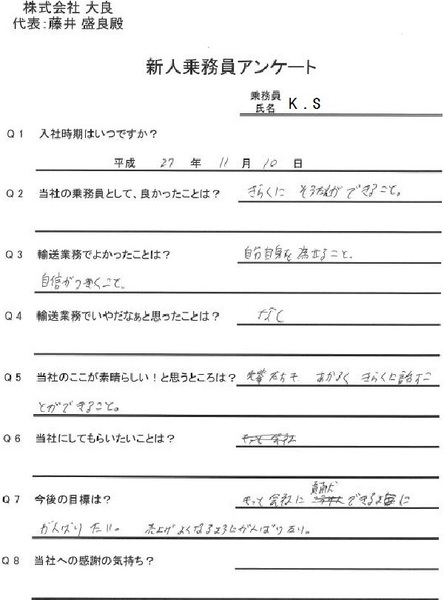 株式会社 大良
代表:藤井 盛良殿
新人乗務員アンケート
乗務員
氏名 K.S
Q1 入社時期はいつですか?
平成 27 年 11 月 10 日
Q2 当社の乗務員として、良かったことは? きらくに そうだんができること。
Q3 輸送業務でよかったことは? 自分自身を
自信がつくこと。
Q4 輸送業務でいやだなぁと思ったことは? なし
Q5 当社のここが素晴らしい!と思うところは? あかるく きらくに話すこ
とができること。
Q6 当社にしてもらいたいことは?
Q7 今後の目標は? もって会社に 貢献 できる様に
がんばりたい。 売上げよくなるようにがんばりたい。
Q8 当社への感謝の気持ち?